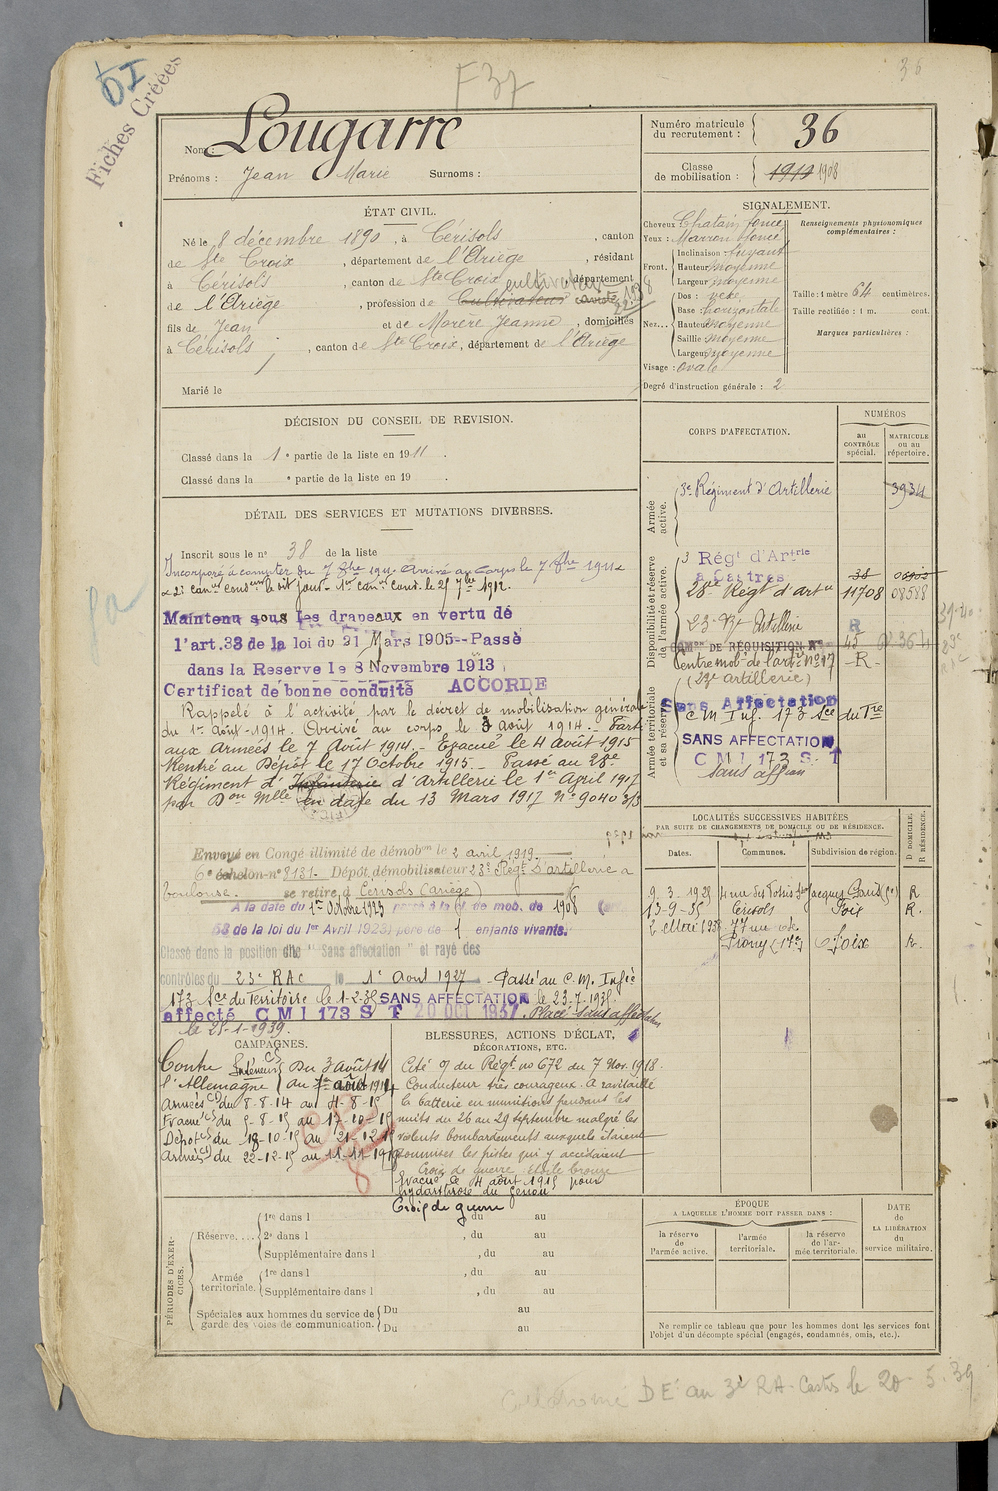 36
F37
Fiches Créées
Nom : Lougarre
Prénoms : Jean Marie Surnoms :
Numéro matricule du recrutement : 36
Classe de mobilisation : 1911 1908
ÉTAT CIVIL.
Né le 8 décembre 1890, à Cérisols, canton
de Ste Croix, département de l'Ariège, résidant
à Cérisols, canton de Ste Croix, département
de l'Ariège, profession de Cultivateur cultivateur
fils de Jean et de Morère Jeanne, domiciliés
à Cérisols, canton de Ste Croix, département de l'Ariège
Marié le
SIGNALEMENT.
Cheveux Chatain foncé
Yeux : Marron foncé
Front. Inclinaison : fuyant
Hauteur moyenne
Largeur moyenne
Nez... Dos :
Base : horizontale
Hauteur moyenne
Saillie moyenne
Largeur moyenne
Visage : ovale
Degré d'instruction générale : 2
Renseignements physionomiques complémentaires :
Taille : 1 mètre 64 centimètres.
Taille rectifiée : 1 m. cent.
Marques particulières :
DÉCISION DU CONSEIL DE REVISION.
Classé dans la 1e partie de la liste en 1911.
Classé dans la e partie de la liste en 19 .
DÉTAIL DES SERVICES ET MUTATIONS DIVERSES.
Inscrit sous le n° 38 de la liste
Incorporé à compter du 7 8bre 1911. Arrivé au Corps le 7 8bre 1911 &
2e can. cond. le dit jour. 1er can. cond. le 25 7bre 1912.
Maintenu sous les drapeaux en vertu de
l'art. 33 de la loi du 21 Mars 1905 - Passé
dans la Reserve le 8 Novembre 1913
Certificat de bonne conduite ACCORDÉ
Rappelé à l'activité par le décret de mobilisation générale
du 1er Août 1914. Arrivé au corps le 3 Août 1914. - Parti
aux Armées le 7 Août 1914. - Evacué le 4 Août 1915
Rentré au Dépôt le 17 Octobre 1915. - Passé au 28e
Régiment d'Infanterie d'Artillerie le 1er April 1917
par Don Mlle en date du 13 Mars 1917 N° 9040 3/3
Envoyé en Congé illimité de démobon le 2 avril 1919.
6e échelon n° 8131. Dépôt démobilisateur 23e Régt d'artillerie à
Toulouse. se retire à Cérisols (Ariège)
A la date du 1er Octobre 1923 passé à la cl. de mob. de 1908
58 de la loi du 1er Avril 1923) père de 1 enfants vivants.
Classé dans la position dite "Sans affectation" et rayé des
contrôles du 23e RAC le 1er Aout 1927 - Passé au C.M. Infie
173 Sce du Territoire le 1-2-35 SANS AFFECTATION le 23-7-1935.
affecté C M I 173 S T 20 OCT 1937. Placé sans affectation
le 25-1-1939.
CORPS D'AFFECTATION.
NUMÉROS
au CONTRÔLE spécial.
MATRICULE ou au répertoire.
Armée active.
3e Régiment d'Artillerie 3934
Disponibilité et réserve de l'armée active.
3 Régt d'Artrie
à Castres 38
28e Régt d'Artie 11708 08588
23e Rgt Artillerie R
COMon DE RÉQUISITION 45
Centre mobr de l'artie n° 17 - R -
(23e artillerie)
Armée territoriale et sa réserve.
Sans Affectation
C M Inf. 173 Sce du Tre
SANS AFFECTATION
C M I 173 S. T
Sans affon
LOCALITÉS SUCCESSIVES HABITÉES
PAR SUITE DE CHANGEMENTS DE DOMICILE OU DE RÉSIDENCE.
Dates. Communes. Subdivision de région. D DOMICILE. R RÉSIDENCE.
9. 3. 1928 R
13-9-35 Cérisols Foix R.
2 Mai 1938 77 rue de
Prony (17e) Foix R.
CAMPAGNES.
Contre l'Allemagne
Intérieur CS Du 3 août 14
au 7 août 1914
Armées CD du 8-8-14 au 4-8-15
Evacué CS du 5-8-15 au 17-10-15
Dépôt CS du 18-10-15 au 21-12-15
Armées CD du 22-12-15 au 11-11-1918
BLESSURES, ACTIONS D'ÉCLAT,
DÉCORATIONS, ETC.
Cité O/ du Régt no 672 du 7 Nov. 1918.
Conducteur très courageux. A ravitaillé
la batterie en munitions pendant les
nuits du 26 au 29 septembre malgré les
violents bombardements auxquels étaient
soumises les pistes qui y accédaient
Croix de guerre étoile bronze
Evacué le 4 août 1915 pour
hydarthrose du genou
Croix de guerre
PÉRIODES D'EXERCICES.
Réserve.... 1re dans l , du au
2e dans l , du au
Supplémentaire dans l , du au
Armée territoriale. 1re dans l , du au
Supplémentaire dans l , du au
Spéciales aux hommes du service de garde des voies de communication. Du au
Du au
ÉPOQUE
A LAQUELLE L'HOMME DOIT PASSER DANS :
la réserve de l'armée active.
l'armée territoriale.
la réserve de l'armée territoriale.
DATE de LA LIBÉRATION du service militaire.
Ne remplir ce tableau que pour les hommes dont les services font
l'objet d'un décompte spécial (engagés, condamnés, omis, etc.).
DE au 3e RA. Castres le 20-5-39